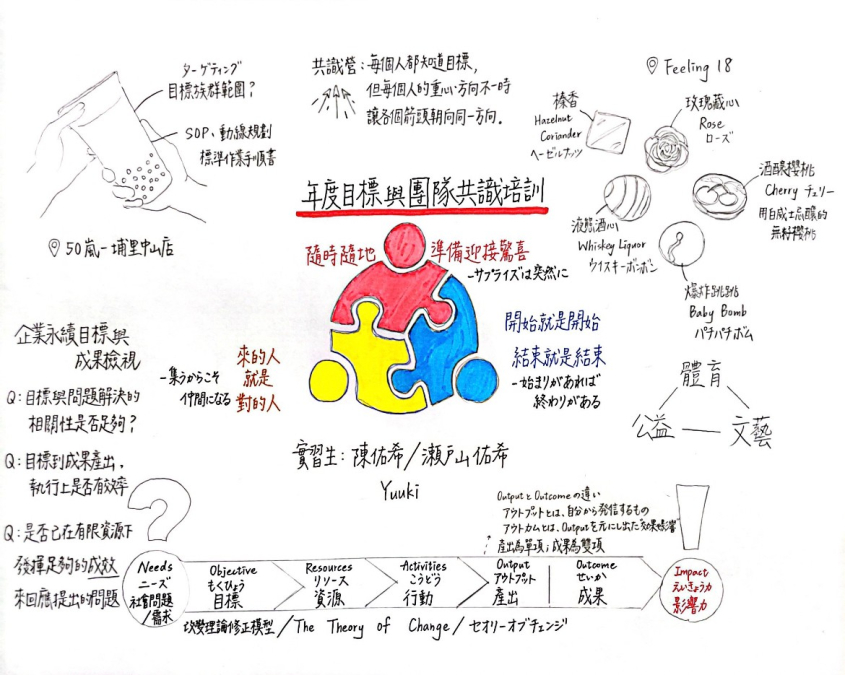 ターゲティング
目標族群範圍？
SOP、動線規劃
標準作業手順書
50嵐－埔里中山店
共識營：每個人都知道目標，
但每個人的重心方向不一時
讓各個箭頭朝向同一方向。
Feeling 18
榛香
Hazelnut
Coriander
ヘーゼルナッツ
玫瑰藏心
Rose
ローズ
酒釀櫻桃
Cherry チェリー
用白威士忌釀的
無籽櫻桃
液態酒心
Whiskey Liquor
ウイスキーボンボン
爆炸跳跳
Baby Bomb
パチパチボム
年度目標與團隊共識培訓
隨時隨地 準備迎接驚喜
－サプライズは突然に
開始就是開始
結束就是結束
－始まりがあれば
終わりがある
來的人
就是
對的人
－集うからこそ
仲間になる
體育
公益 — 文藝
企業永續目標與
成果檢視
Q：目標與問題解決的
相關性是否足夠？
Q：目標到成果產出，
執行上是否有效率
Q：是否已在有限資源下
發揮足夠的成效
來回應提出的問題
實習生：陳佑希／瀨戶山佑希
Yuuki
OutputとOutcomeの違い
アウトプットとは、自分から発信するもの
アウトカムとは、Outputを元にし出た効果・影響
產出為單項；成果為雙項
Needs
ニーズ
社會問題
/需求
Objective
もくひょう
目標
Resources
リソース
資源
Activities
こうどう
行動
Output
アウトプット
產出
Outcome
せいか
成果
Impact
えいきょう力
影響力
改變理論修正模型／The Theory of Change／セオリーオブチェンジ